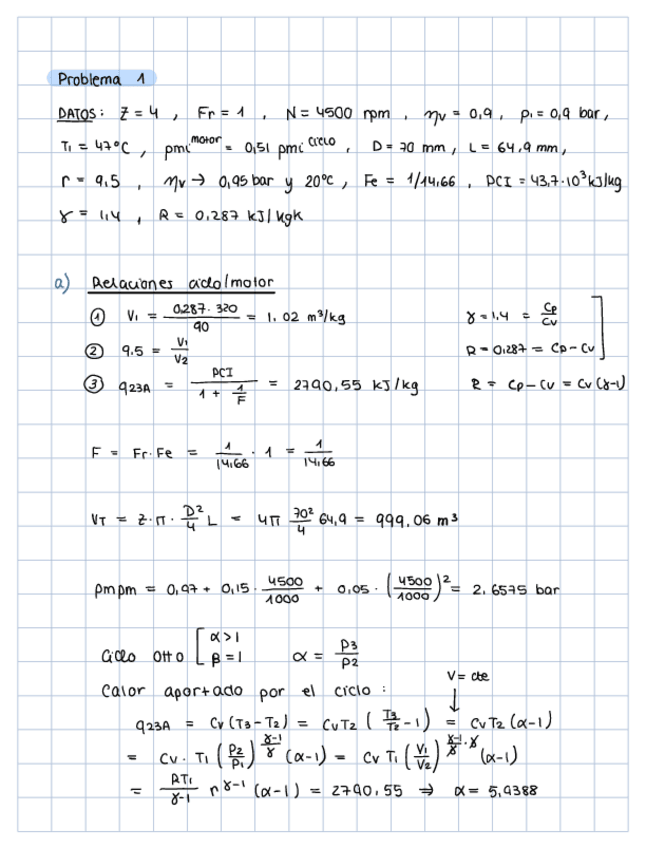 Problema 1
DATOS: Z = 4 , Fr = 1 , N = 4500 rpm , ηv = 0,9 , p1 = 0,9 bar,
T1 = 47°C , pmi^motor = 0,51 pmi^ciclo , D = 70 mm , L = 64,9 mm,
r = 9,5 , ηv → 0,95 bar y 20°C , Fe = 1/14,66 , PCI = 43,7·10³ kJ/kg
γ = 1,4 , R = 0,287 kJ/kgK
a) Relaciones ciclo/motor
① V1 = 0,287 · 320 / 90 = 1.02 m³/kg γ = 1,4 = Cp/Cv
② 9.5 = V1/V2 R = 0,287 = Cp - Cv
③ q23A = PCI / (1 + 1/F) = 2790,55 kJ/kg R = Cp - Cv = Cv (γ-1)
F = Fr · Fe = 1/14,66 · 1 = 1/14,66
VT = Z · π · D²/4 L = 4π 70²/4 64,9 = 999,06 m³
pmpm = 0,97 + 0,15 · 4500/1000 + 0,05 · (4500/1000)² = 2.6575 bar
Ciclo Otto [ α > 1 β = 1 α = P3/P2
V = cte
Calor aportado por el ciclo :
q23A = Cv (T3 - T2) = Cv T2 ( T3/T2 - 1) = Cv T2 (α-1)
= Cv · T1 (P2/P1)^(γ-1/γ) (α-1) = Cv T1 (V1/V2)^(γ-1/γ · γ) (α-1)
= RT1/γ-1 r^γ-1 (α-1) = 2790,55 ⇒ α = 5,9388